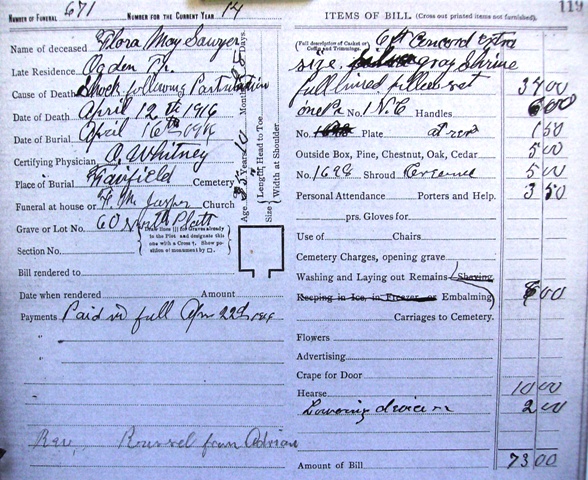 119
NUMBER OF FUNERAL 671 NUMBER FOR THE CURRENT YEAR 14
Name of deceased Flora May Sawyer
Late Residence Ogden Tr.
Cause of Death Shock following Parturition
Date of Death April 12th 1916
Date of Burial April 16th 1916
Certifying Physician Whitney
Place of Burial Fairfield Cemetery
Funeral at house or Church
Grave or Lot No. 60 North Platt
Draw lines for Graves already in the Plot and designate this one with a Cross †. Show position of monument by □.
Section No.
Bill rendered to
Date when rendered Amount
Payments Paid in full Apr 22d 1916
"
"
Rev. from Adrian
Age Years 10 Months Days.
Length, Head to Toe.
Size Width at Shoulder
ITEMS OF BILL (Cross out printed items not furnished.)
(Full description of Casket or Coffin and Trimmings.) 6ft Concord extra
size gray Shrine
full lined pillow set 34 00
one Pr No. 1 N.C Handles 6 00
No. Plate at rest 1 50
Outside Box, Pine, Chestnut, Oak, Cedar 5 00
No. 1698 Shroud 5 00
Personal Attendance Porters and Help. 3 50
prs. Gloves for
Use of Chairs
Cemetery Charges, opening grave
Washing and Laying out Remains Shaving
Keeping in Ice, in Freezer, or Embalming 6 00
Carriages to Cemetery.
Flowers
Advertising
Crape for Door
Hearse 10 00
Lowering device 2 00
Amount of Bill 73 00